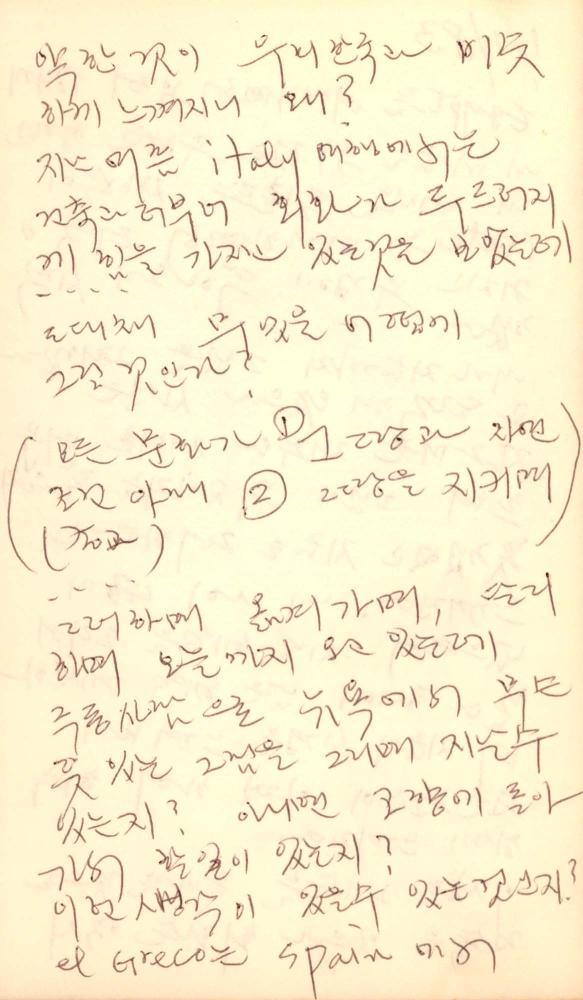 약한 것이 우리 한국과 비듯
하게 느껴지니 왜?
지난 여름 italy 여행에서는
건축과 더부러 회화가 두드러지
게 힘을 가지고 있는것을 보았는데
- - - - -
도대체 무엇을 어떻게
그릴 것인가?
(모든 문화가 ① 그 땅과 자연
조건 아래 ② 그땅을 지키며
(종교) )
- - - - -
그러하며 옮겨가며, 순리
하며 오늘까지 오고 있는데
죽통사람으로 뉴욕에서 무슨
뜻 있는 그림을 그리며 지날수
있는지? 아니면 고향에 돌아
가서 할일이 있는지?
이런 생각이 있을수 있는것인지?
el Greco는 Spain 에서